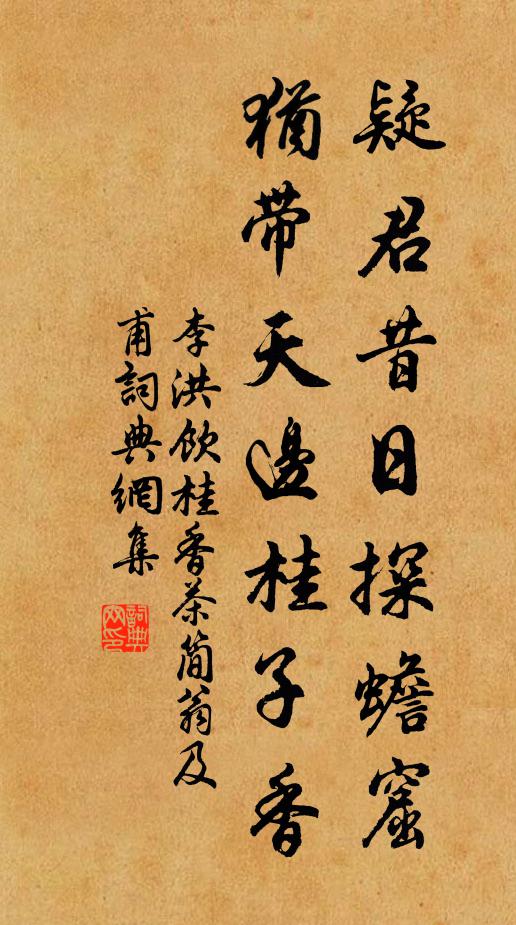 疑君昔日探蟾窟
猶帶天邊桂子香
李洪飲桂香茶簡翁及
甫詞典網集
詞典網印